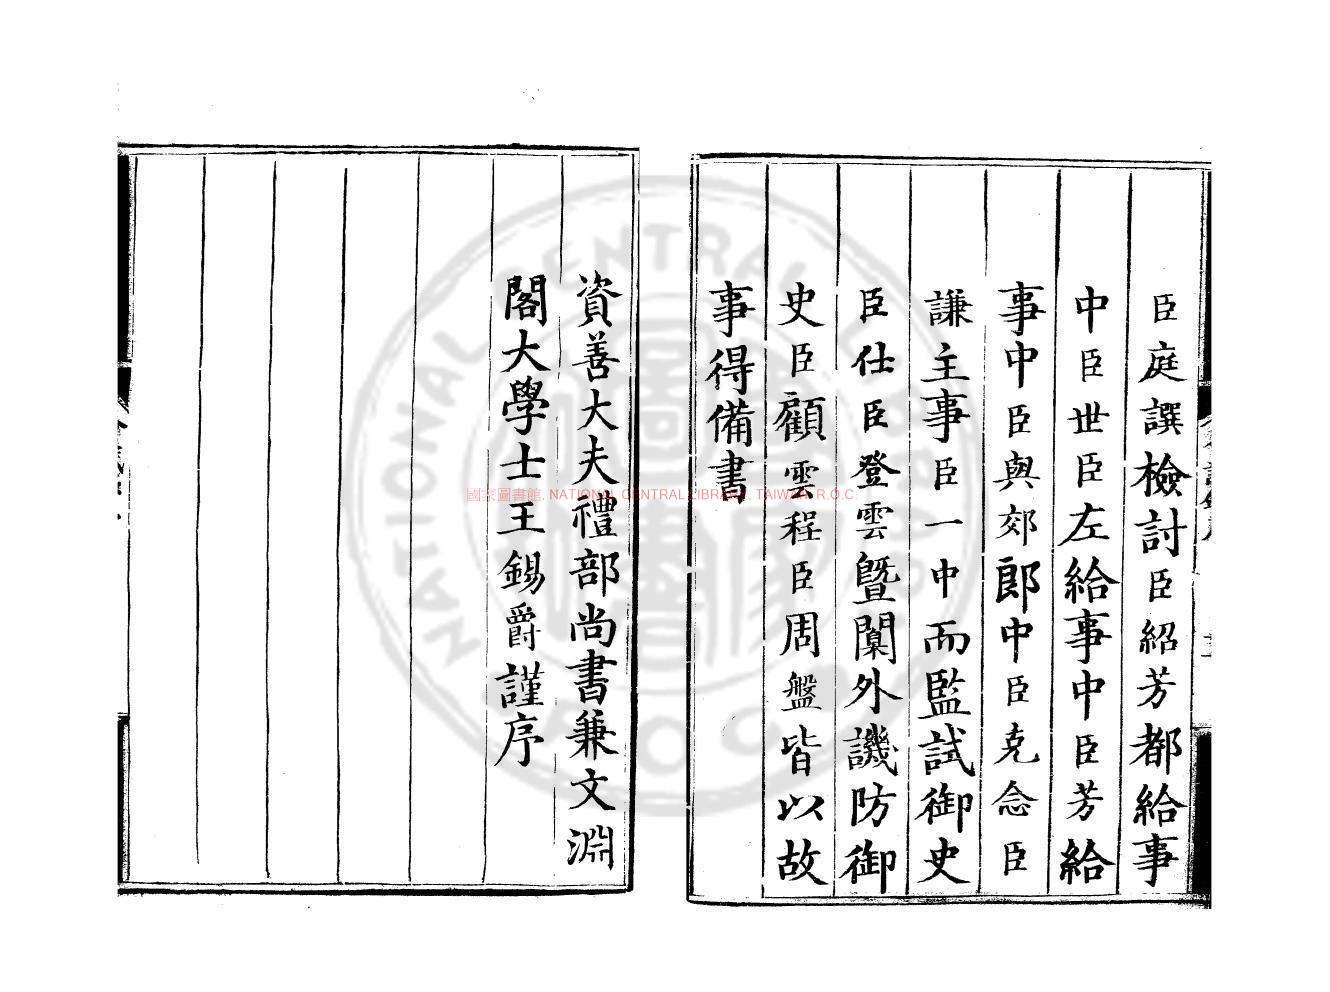 臣庭譔檢討臣紹芳都給事
中臣世臣左給事中臣芳給
事中臣與郊郎中臣克念臣
謙主事臣一中而監試御史
臣仕臣登雲暨闈外譏防御
史臣顧雲程臣周盤皆以故
事得備書
資善大夫禮部尚書兼文淵
閣大學士王錫爵謹序
國家圖書館, NATIONAL CENTRAL LIBRARY, TAIWAN R.O.C.
NATIONAL CENTRAL LIBRARY